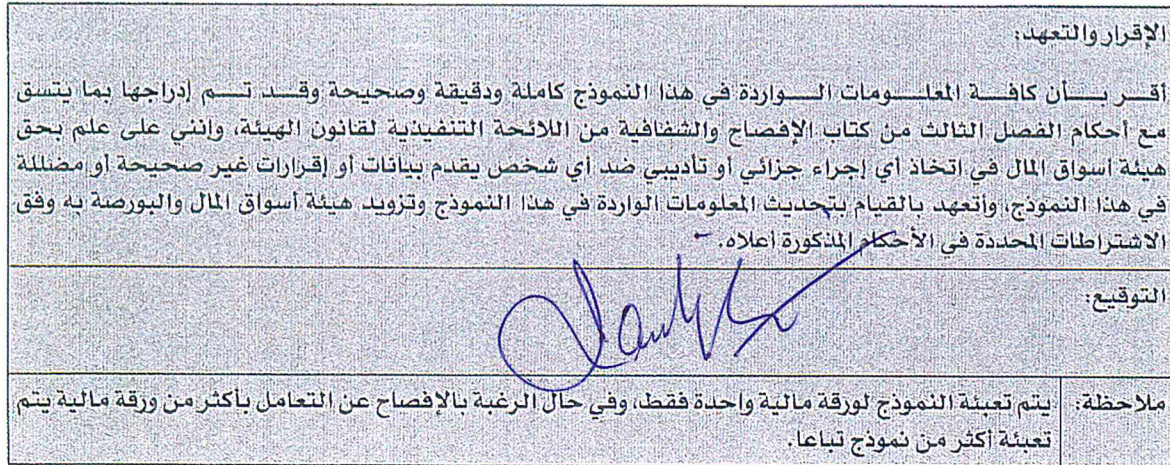 الإقرار والتعهد:
أقر بأن كافة المعلومات الواردة في هذا النموذج كاملة ودقيقة وصحيحة وقد تم إدراجها بما يتسق
مع أحكام الفصل الثالث من كتاب الإفصاح والشفافية من اللائحة التنفيذية لقانون الهيئة، وانني على علم بحق
هيئة أسواق المال في اتخاذ أي إجراء جزائي أو تأديبي ضد أي شخص يقدم بيانات أو إقرارات غير صحيحة أو مضللة
في هذا النموذج، وأتعهد بالقيام بتحديث المعلومات الواردة في هذا النموذج وتزويد هيئة أسواق المال والبورصة به وفق
الاشتراطات المحددة في الأحكام المذكورة أعلاه.
التوقيع:
ملاحظة: يتم تعبئة النموذج لورقة مالية واحدة فقط، وفي حال الرغبة بالإفصاح عن التعامل بأكثر من ورقة مالية يتم
تعبئة أكثر من نموذج تباعا.